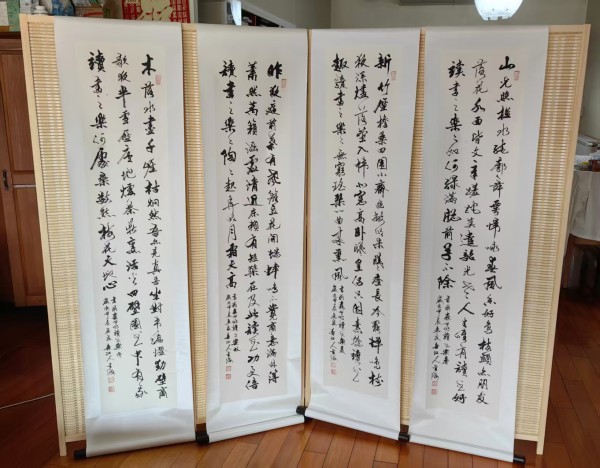 山光照檻水繞廊舞雩歸詠春風香好鳥枝頭亦朋友
落花水面皆文章蹉跎莫遣韶光老人生唯有讀書好
讀書之樂樂何如綠滿窗前草不除
新竹壓檐桑四圍小齋幽敞明朱曦晝長吟罷蟬鳴樹
夜深燼落螢入幃北窗高臥羲皇侶只因素稔讀書
趣讀書之樂樂無窮瑤琴一曲來薰風
昨夜庭前葉有聲籬豆花開蟋蟀鳴不覺商意滿林薄
蕭然萬籟涵虛清近床賴有短檠在及此讀書功更倍
讀書之樂樂陶陶起弄明月霜天高
木落水盡千崖枯迥然吾亦見真吾坐對韋編燈動壁高
歌夜半雪壓廬地爐茶鼎烹活火四壁圖書中有我
讀書之樂何處尋數點梅花天地心